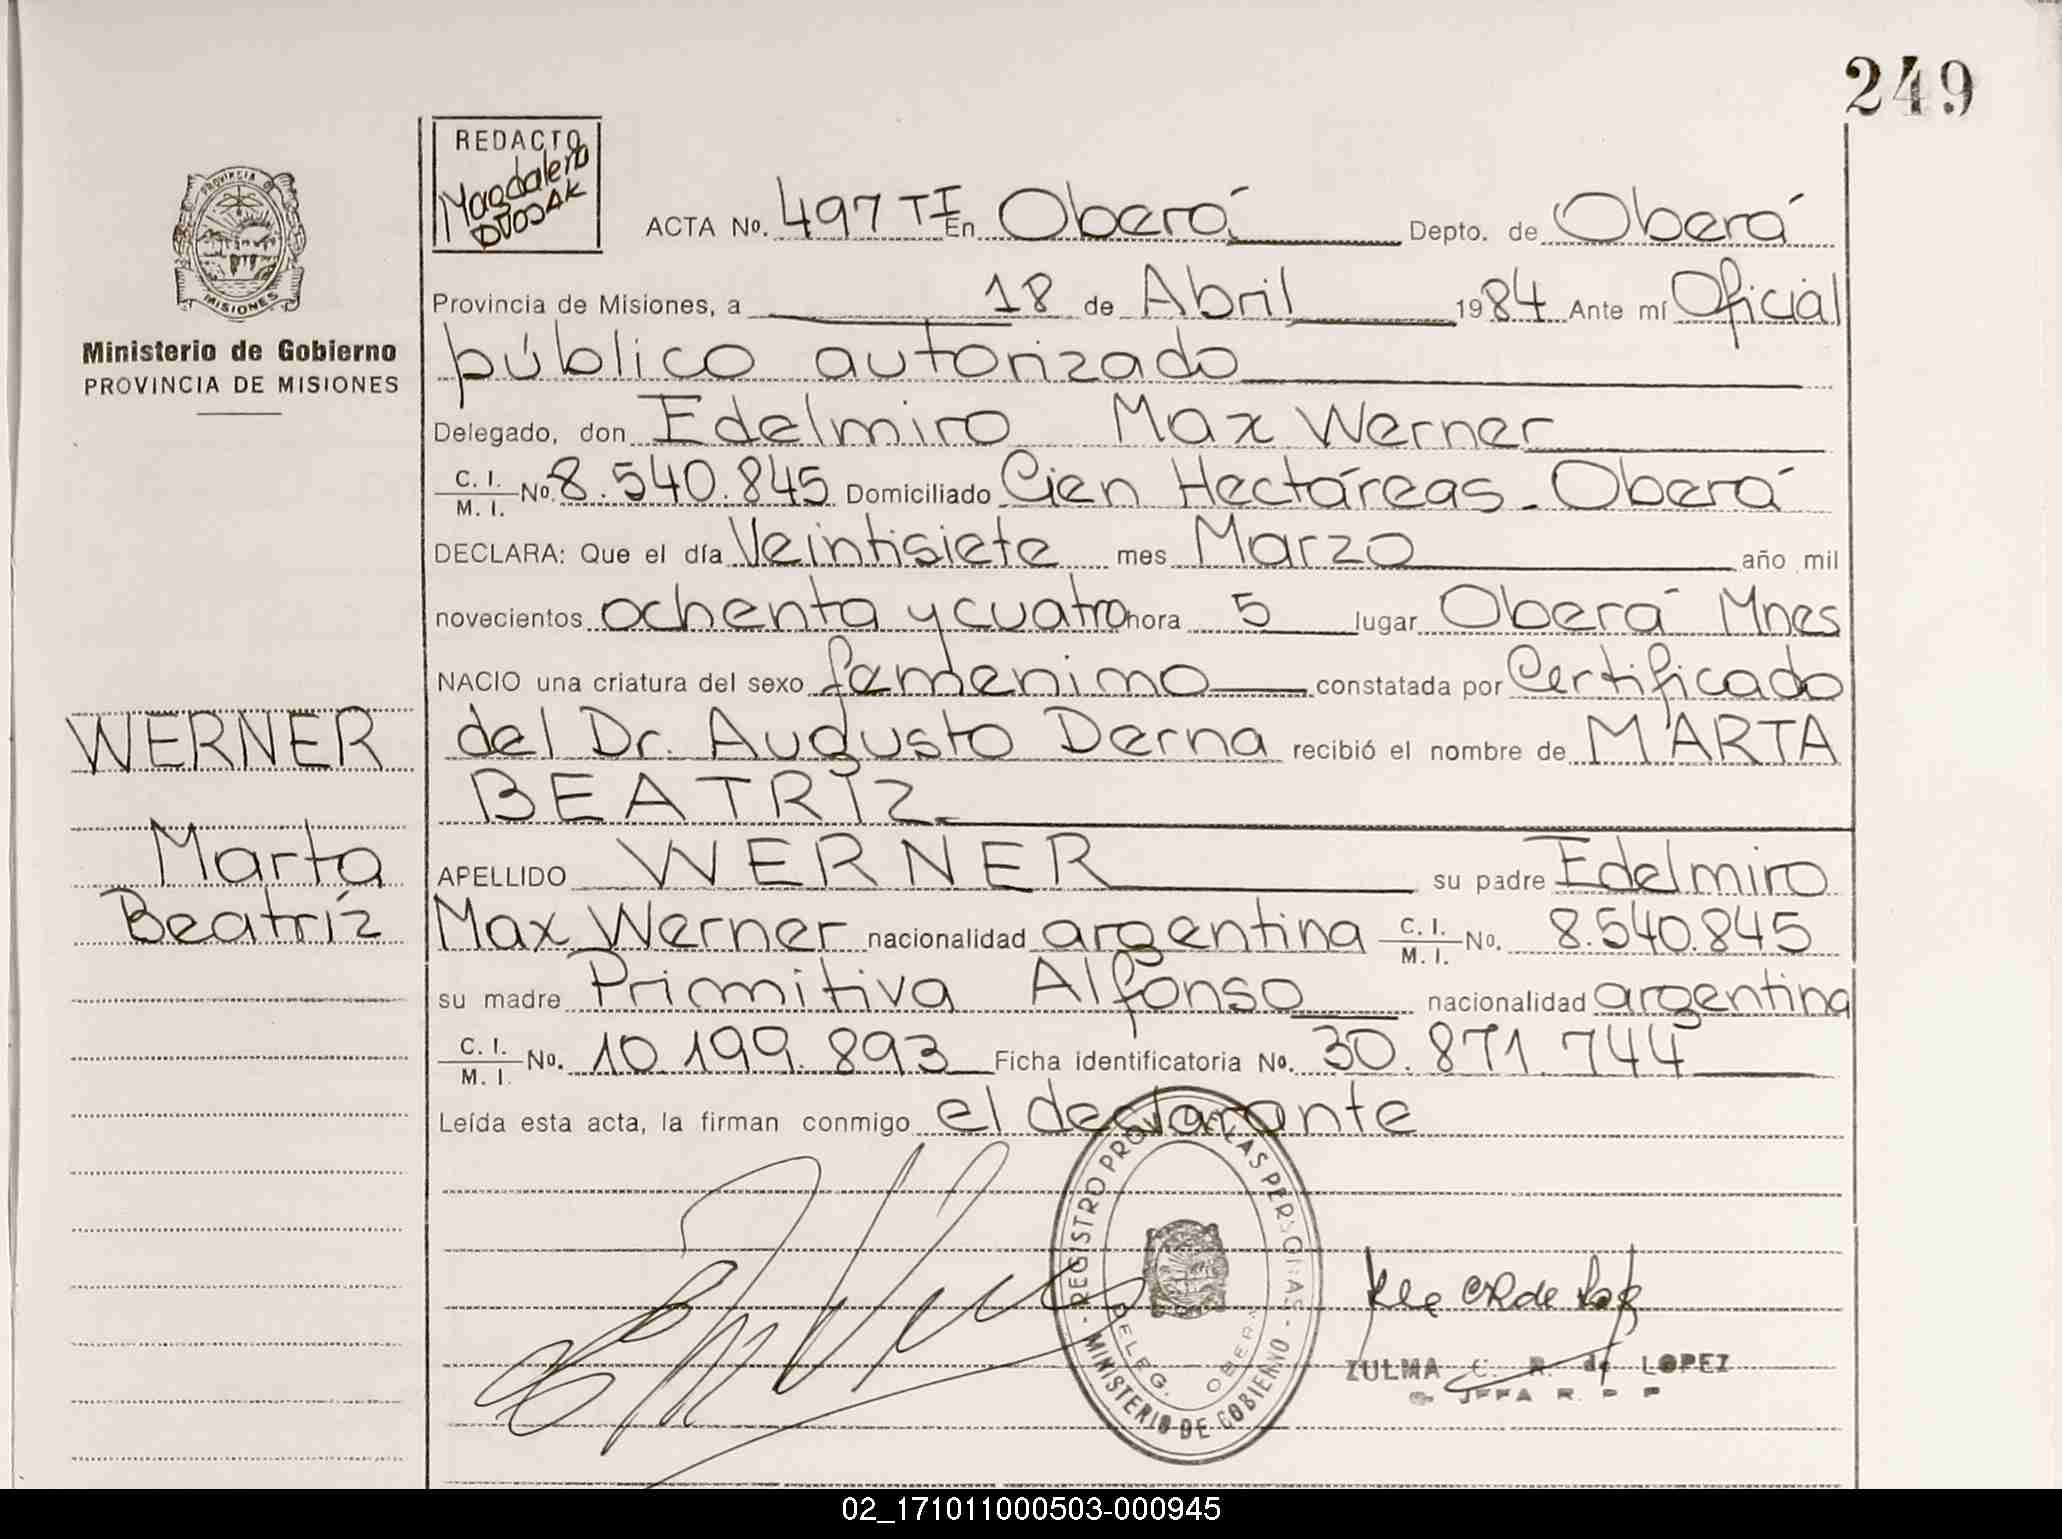 249
REDACTO
Magdalena
DVOJAK
PROVINCIA
MISIONES
Ministerio de Gobierno
PROVINCIA DE MISIONES
ACTA No. 497 TI En Oberá Depto. de Oberá
Provincia de Misiones, a 18 de Abril 1984 Ante mí Oficial
público autorizado
Delegado, don Edelmiro Max Werner
C. I.
M. I. No. 8.540.845 Domiciliado Cien Hectáreas - Oberá
DECLARA: Que el día Veintisiete mes Marzo año mil
novecientos ochenta y cuatro hora 5 lugar Oberá Mnes
NACIO una criatura del sexo femenino constatada por Certificado
del Dr. Augusto Derna recibió el nombre de MARTA
BEATRIZ
WERNER
Marta
Beatríz
APELLIDO WERNER su padre Edelmiro
Max Werner nacionalidad argentina C. I.
M. I. No. 8.540.845
su madre Primitiva Alfonso nacionalidad argentina
C. I.
M. I. No. 10.199.893 Ficha identificatoria No. 30.871.744
Leída esta acta, la firman conmigo el declarante
REGISTRO PROV. DE LAS PERSONAS
- MINISTERIO DE GOBIERNO -
DELEG. OBERA
ZULMA C. R. de LOPEZ
JEFA R. P. P
02_171011000503-000945